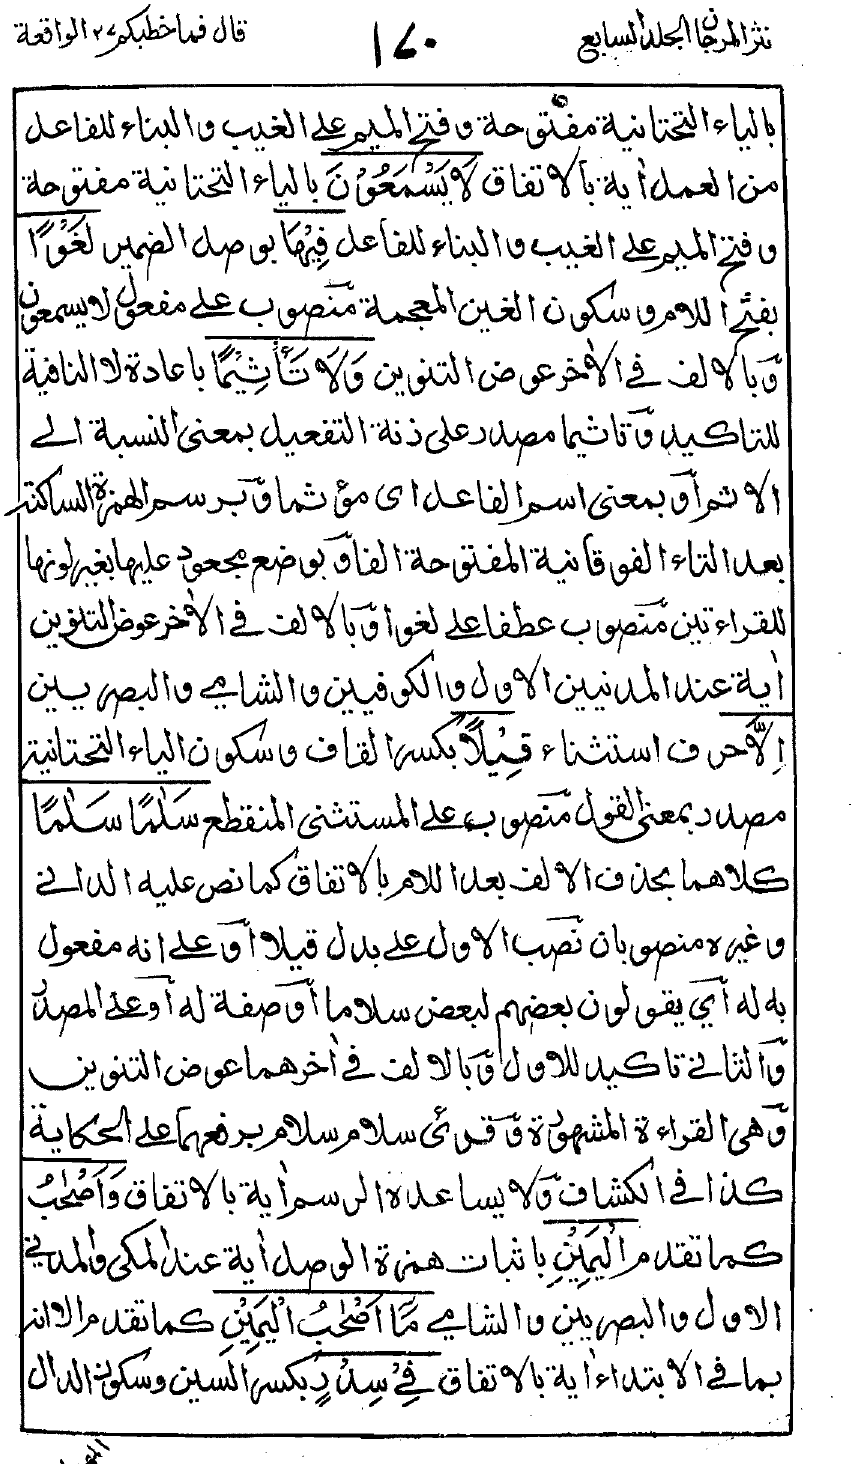 نثر المرجان الجلد السابع ١٧٠ قال فما خطبكم ٢٧ الواقعة
بالياء التحتانية مفتوحة وفتح الميم على الغيب والبناء للفاعل
من العمل اٰية بالاتفاق لَا يَسْمَعُوْنَ بالياء التحتانية مفتوحة
وفتح الميم على الغيب والبناء للفاعل فِيْهَا بوصل الضمير لَغْوًا
بفتح اللام وسكون الغين المعجمة منصوب على مفعول لا يسمعون
وبالالف فى الاٰخر عوض التنوين وَلَا تَأْثِيْمًا باعادة لا النافية
للتاكيد وتاثيما مصدر على زنة التفعيل بمعنى النسبة الى
الاثم او بمعنى اسم الفاعل اى مؤثما وبرسم الهمزة الساكنة
بعد التاء الفوقانية المفتوحة الفا وبوضع مجعود عليها بغير لونها
للقراءتين منصوب عطفا على لغوا وبالالف فى الاٰخر عوض التنوين
اٰية عند المدنيين الاول والكوفيين والشامى والبصريين
اِلَّا حرف استثناء قِيْلًا بكسر القاف وسكون الياء التحتانية
مصدر بمعنى القول منصوب على المستثنى المنقطع سَلٰمًا سَلٰمًا
كلاهما بحذف الالف بعد اللام بالاتفاق كما نص عليه الدانى
وغيره منصوبان نصب الاول على بدل قيلا او على انه مفعول
به له اى يقولون بعضهم لبعض سلاما او صفة له او على المصدر
والثانى تاكيد للاول وبالالف فى اٰخرهما عوض التنوين
وهى القراءة المشهورة وقرئ سلام سلام برفعهما على الحكاية
كذا فى الكشاف ولا يساعده الرسم اٰية بالاتفاق وَاَصْحٰبُ
كما تقدم الْيَمِيْنِ باثبات همزة الوصل اٰية عند المكى والمدنى
الاول والبصريين والشامى مَا اَصْحٰبُ الْيَمِيْنِ كما تقدم الا انه
بما فى الابتداء اٰية بالاتفاق فِيْ سِدْرٍ بكسر السين وسكون الدال